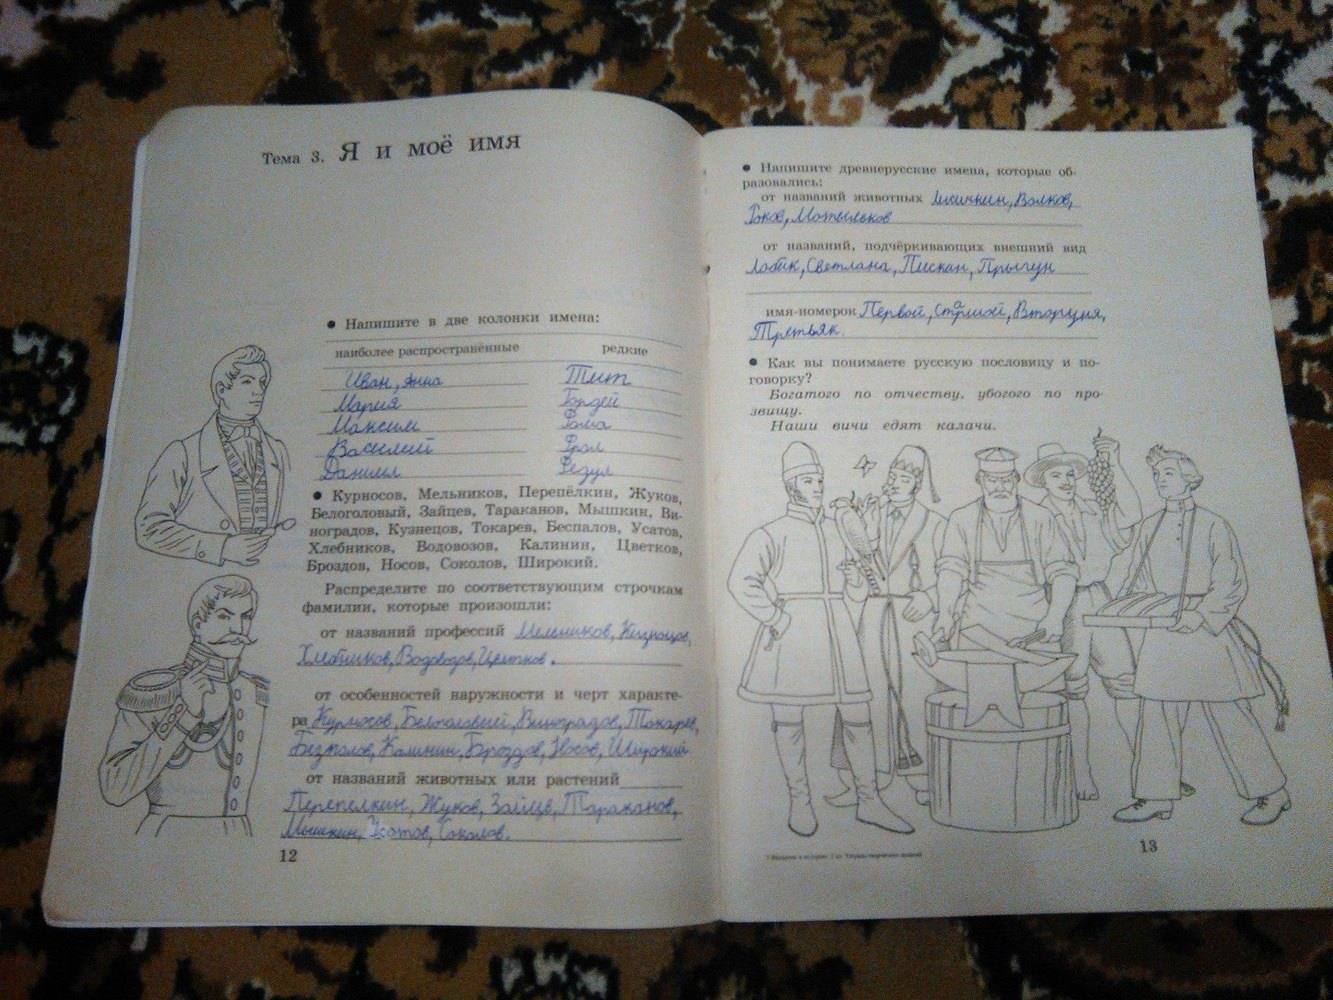 Тема 3. Я и моё имя
● Напишите в две колонки имена:
наиболее распространённые редкие
Иван, Анна Тит
Мария Гордей
Максим Фома
Василий Фрол
Даниил
● Курносов, Мельников, Перепёлкин, Жуков,
Белоголовый, Зайцев, Тараканов, Мышкин, Ви-
ноградов, Кузнецов, Токарев, Беспалов, Усатов,
Хлебников, Водовозов, Калинин, Цветков,
Броздов, Носов, Соколов, Широкий.
Распределите по соответствующим строчкам
фамилии, которые произошли:
от названий профессий Мельников, Кузнецов,
Хлебников, Водовозов, Цветков.
от особенностей наружности и черт характе-
ра Курносов, Белоголовый, Виноградов, Токарев,
Безпалов, Калинин, Броздов, Носов, Широкий
от названий животных или растений
Перепелкин, Жуков, Зайцев, Тараканов,
Мышкин, Усатов, Соколов.
12
● Напишите древнерусские имена, которые об-
разовались:
от названий животных Лисичкин, Волков,
Мотыльков
от названий, подчёркивающих внешний вид
Лобик, Светлана, Пискан, Прыгун
имя-номерок Первой, Старшой, Вторуня,
Третьяк.
● Как вы понимаете русскую пословицу и по-
говорку?
Богатого по отчеству, убогого по про-
звищу.
Наши вичи едят калачи.
13